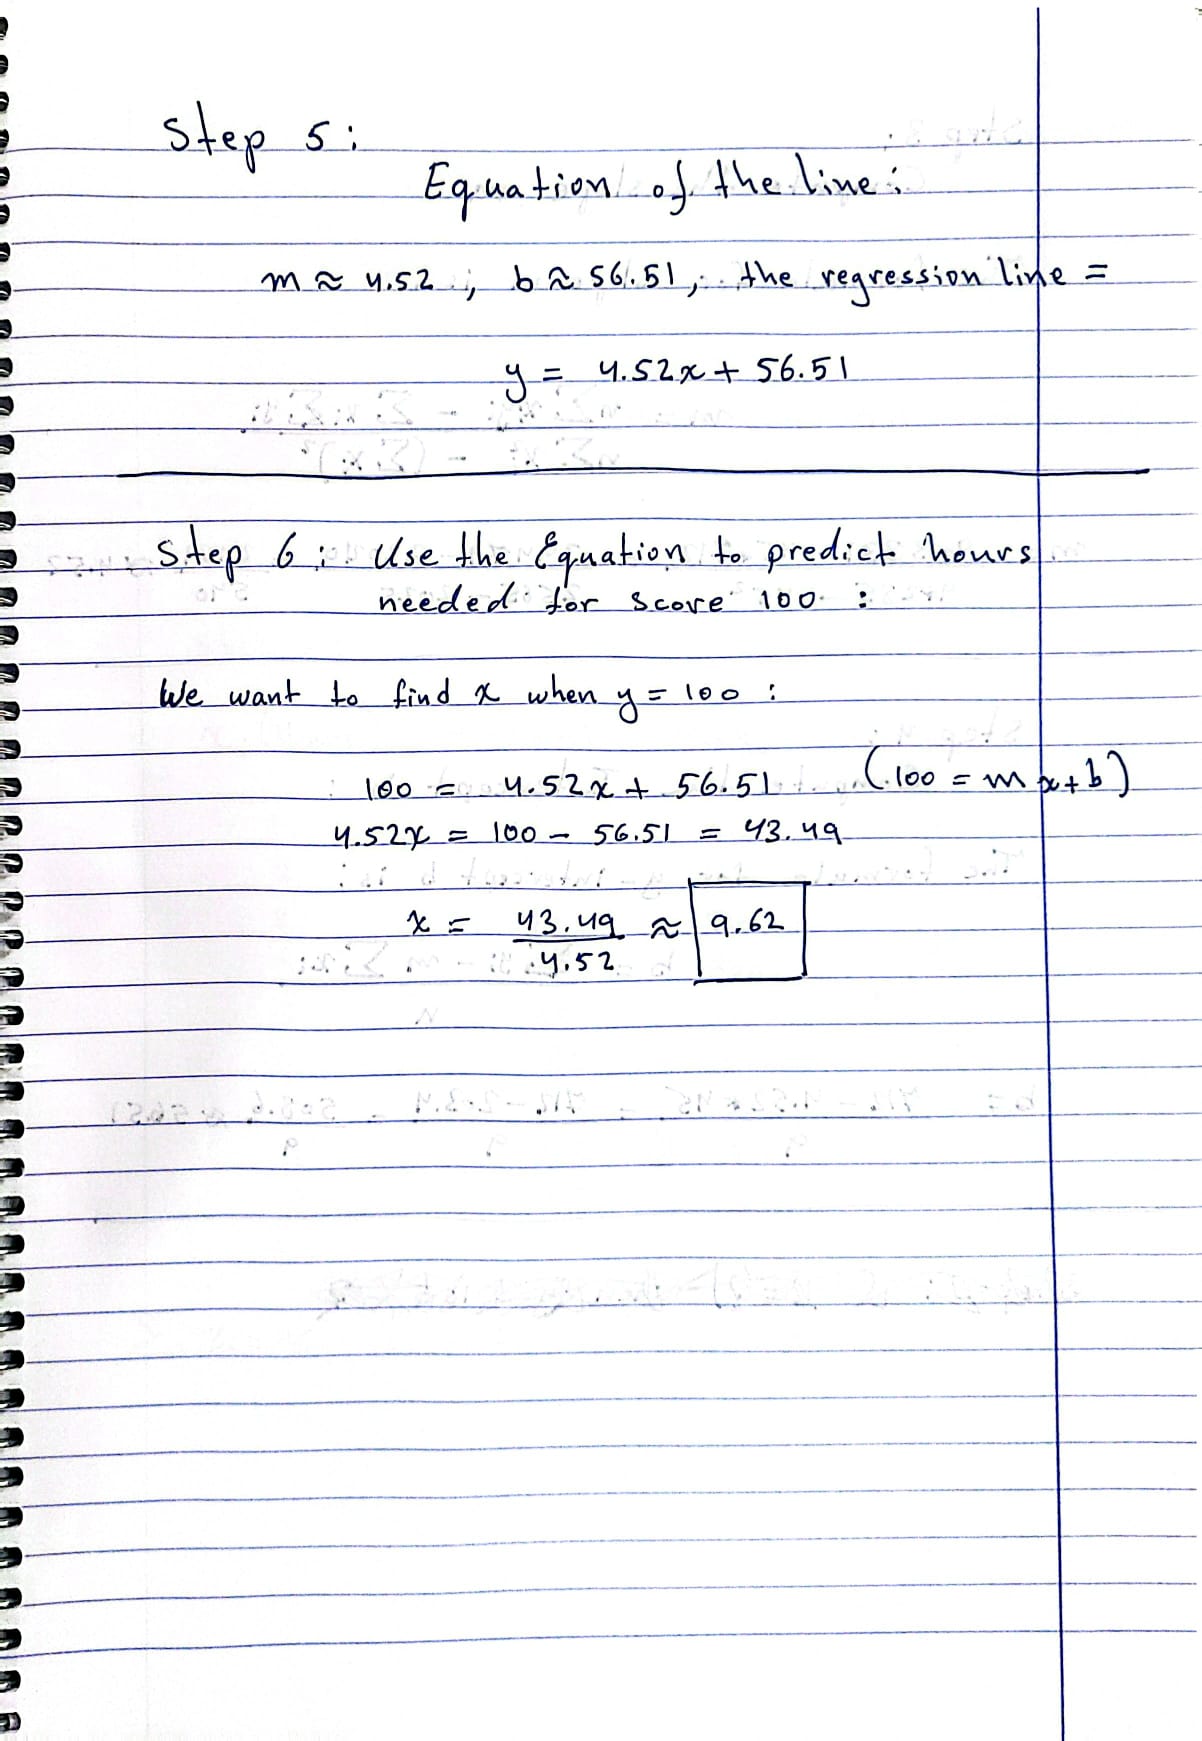 Step 5:
Equation of the line:
m ≈ 4.52 ; b ≈ 56.51, the regression line =
y = 4.52x + 56.51
Step 6: Use the Equation to predict hours
needed for score 100 :
We want to find x when y = 100 :
100 = 4.52x + 56.51 (100 = mx+b)
4.52x = 100 - 56.51 = 43.49
x = 43.49 / 4.52 ≈ 9.62